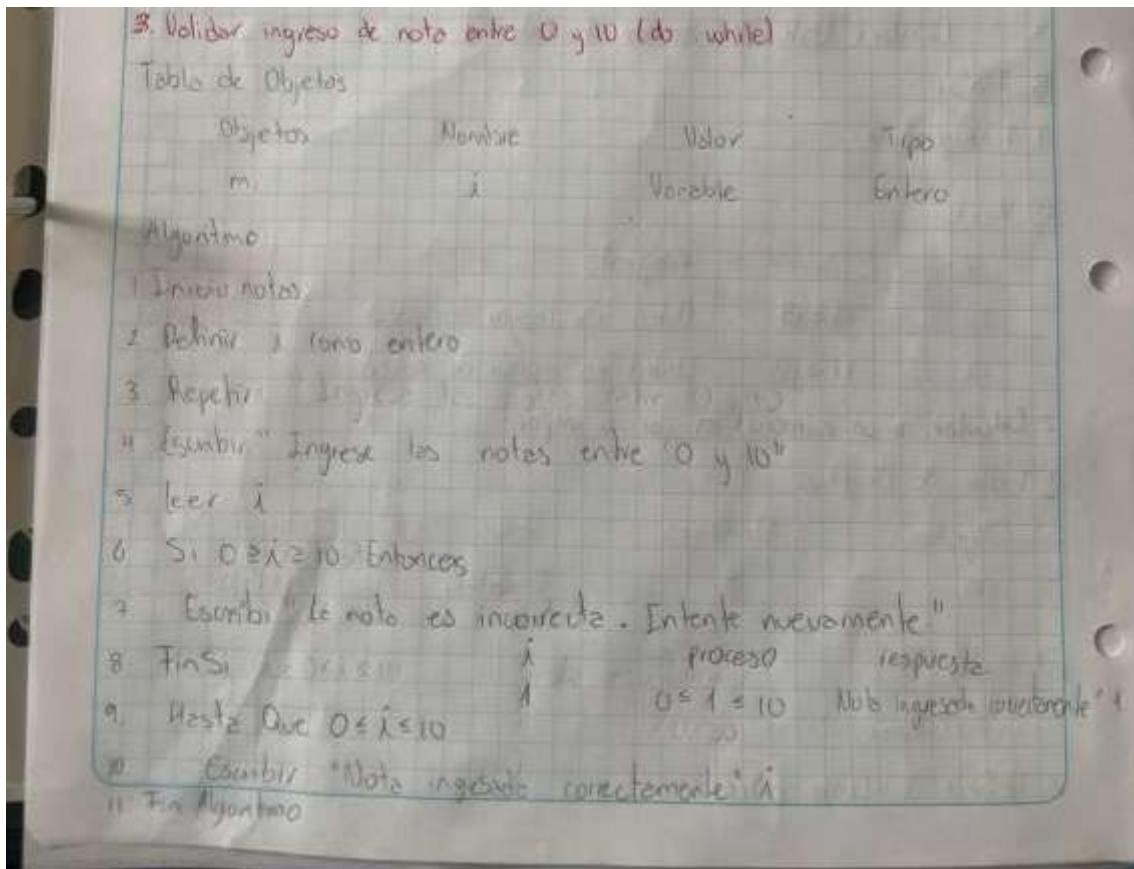 3. Validar ingreso de nota entre 0 y 10 (do while)
Tabla de Objetos
Objetos Nombre Valor Tipo
m i Variable Entero
Algoritmo
1 Inicio notas
2 Definir i como entero
3 Repetir
4 Escribir "Ingrese las notas entre 0 y 10"
5 leer i
6 Si 0 ≥ i ≥ 10 Entonces
7 Escribi "La nota es incorrecta. Intente nuevamente"
8 FinSi i proceso respuesta
1 0 ≤ 1 ≤ 10 Nota ingresada correctamente" 1
9. Hasta Que 0 ≤ i ≤ 10
10 Escribir "Nota ingresada correctamente" i
11 Fin Algoritmo